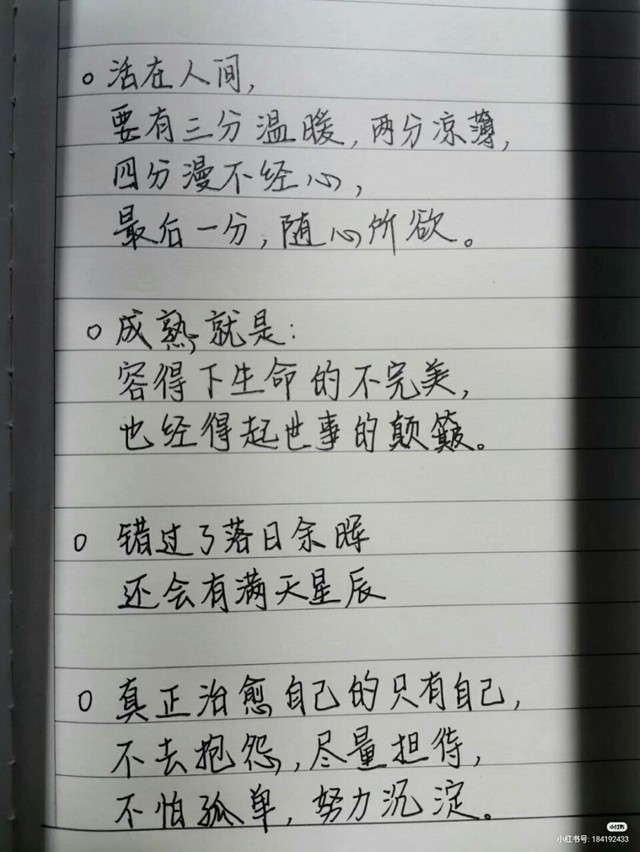 活在人间,
要有三分温暖,两分凉薄,
四分漫不经心,
最后一分,随心所欲。
成熟就是:
容得下生命的不完美,
也经得起世事的颠簸。
错过了落日余晖
还会有满天星辰
真正治愈自己的只有自己,
不去抱怨,尽量担待,
不怕孤单,努力沉淀。
小红书
小红书号: 184192433